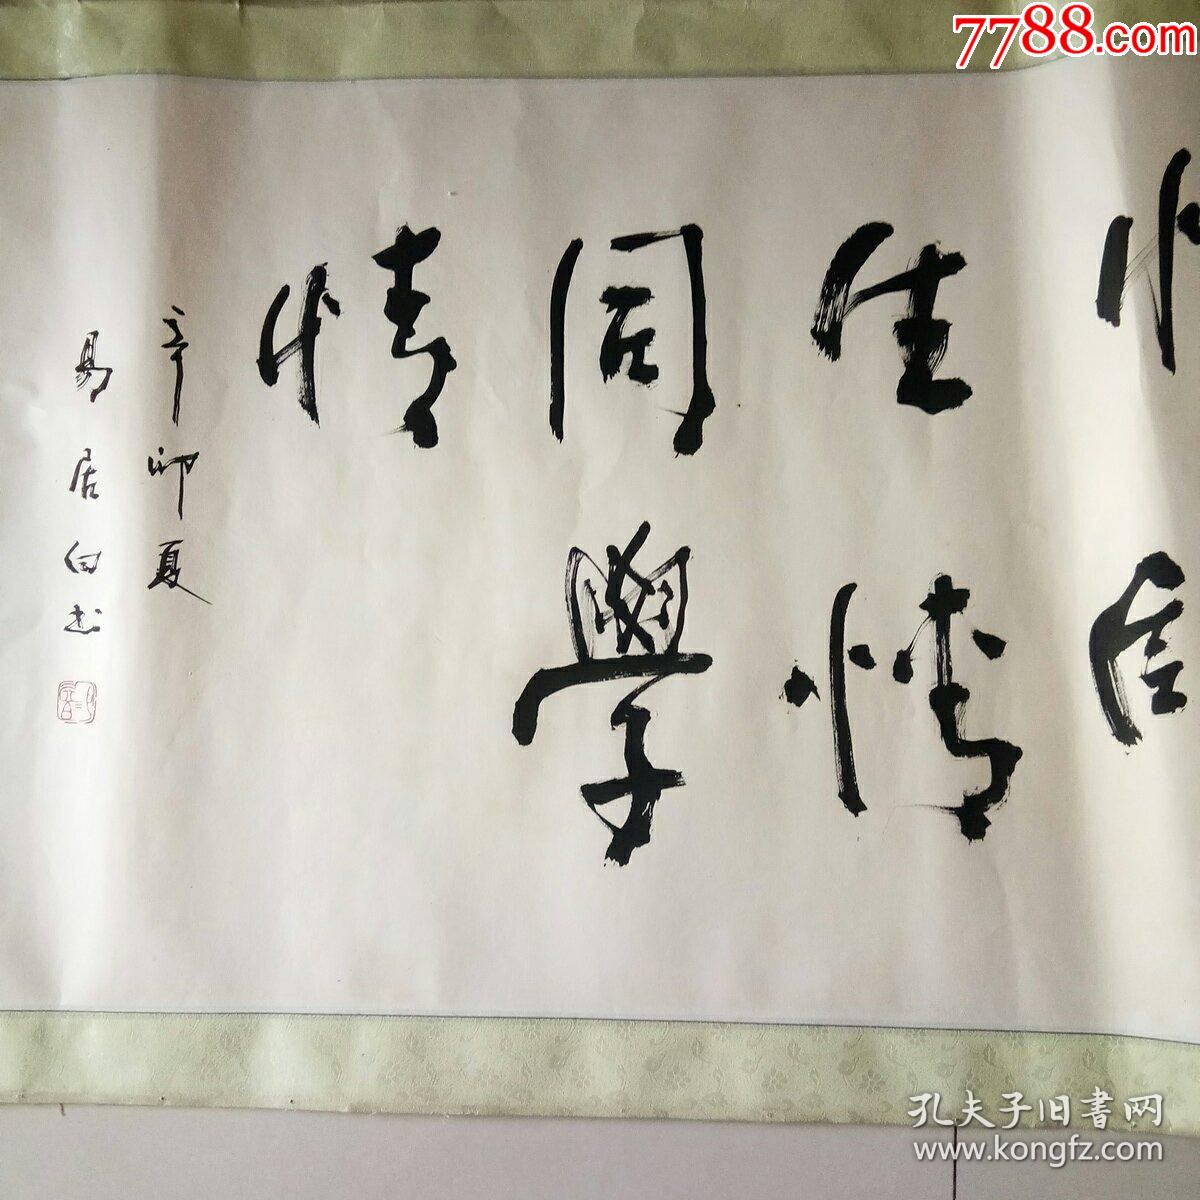 7788.com
生情
同學
情
辛卯夏
易居书
孔夫子旧書网
www.kongfz.com